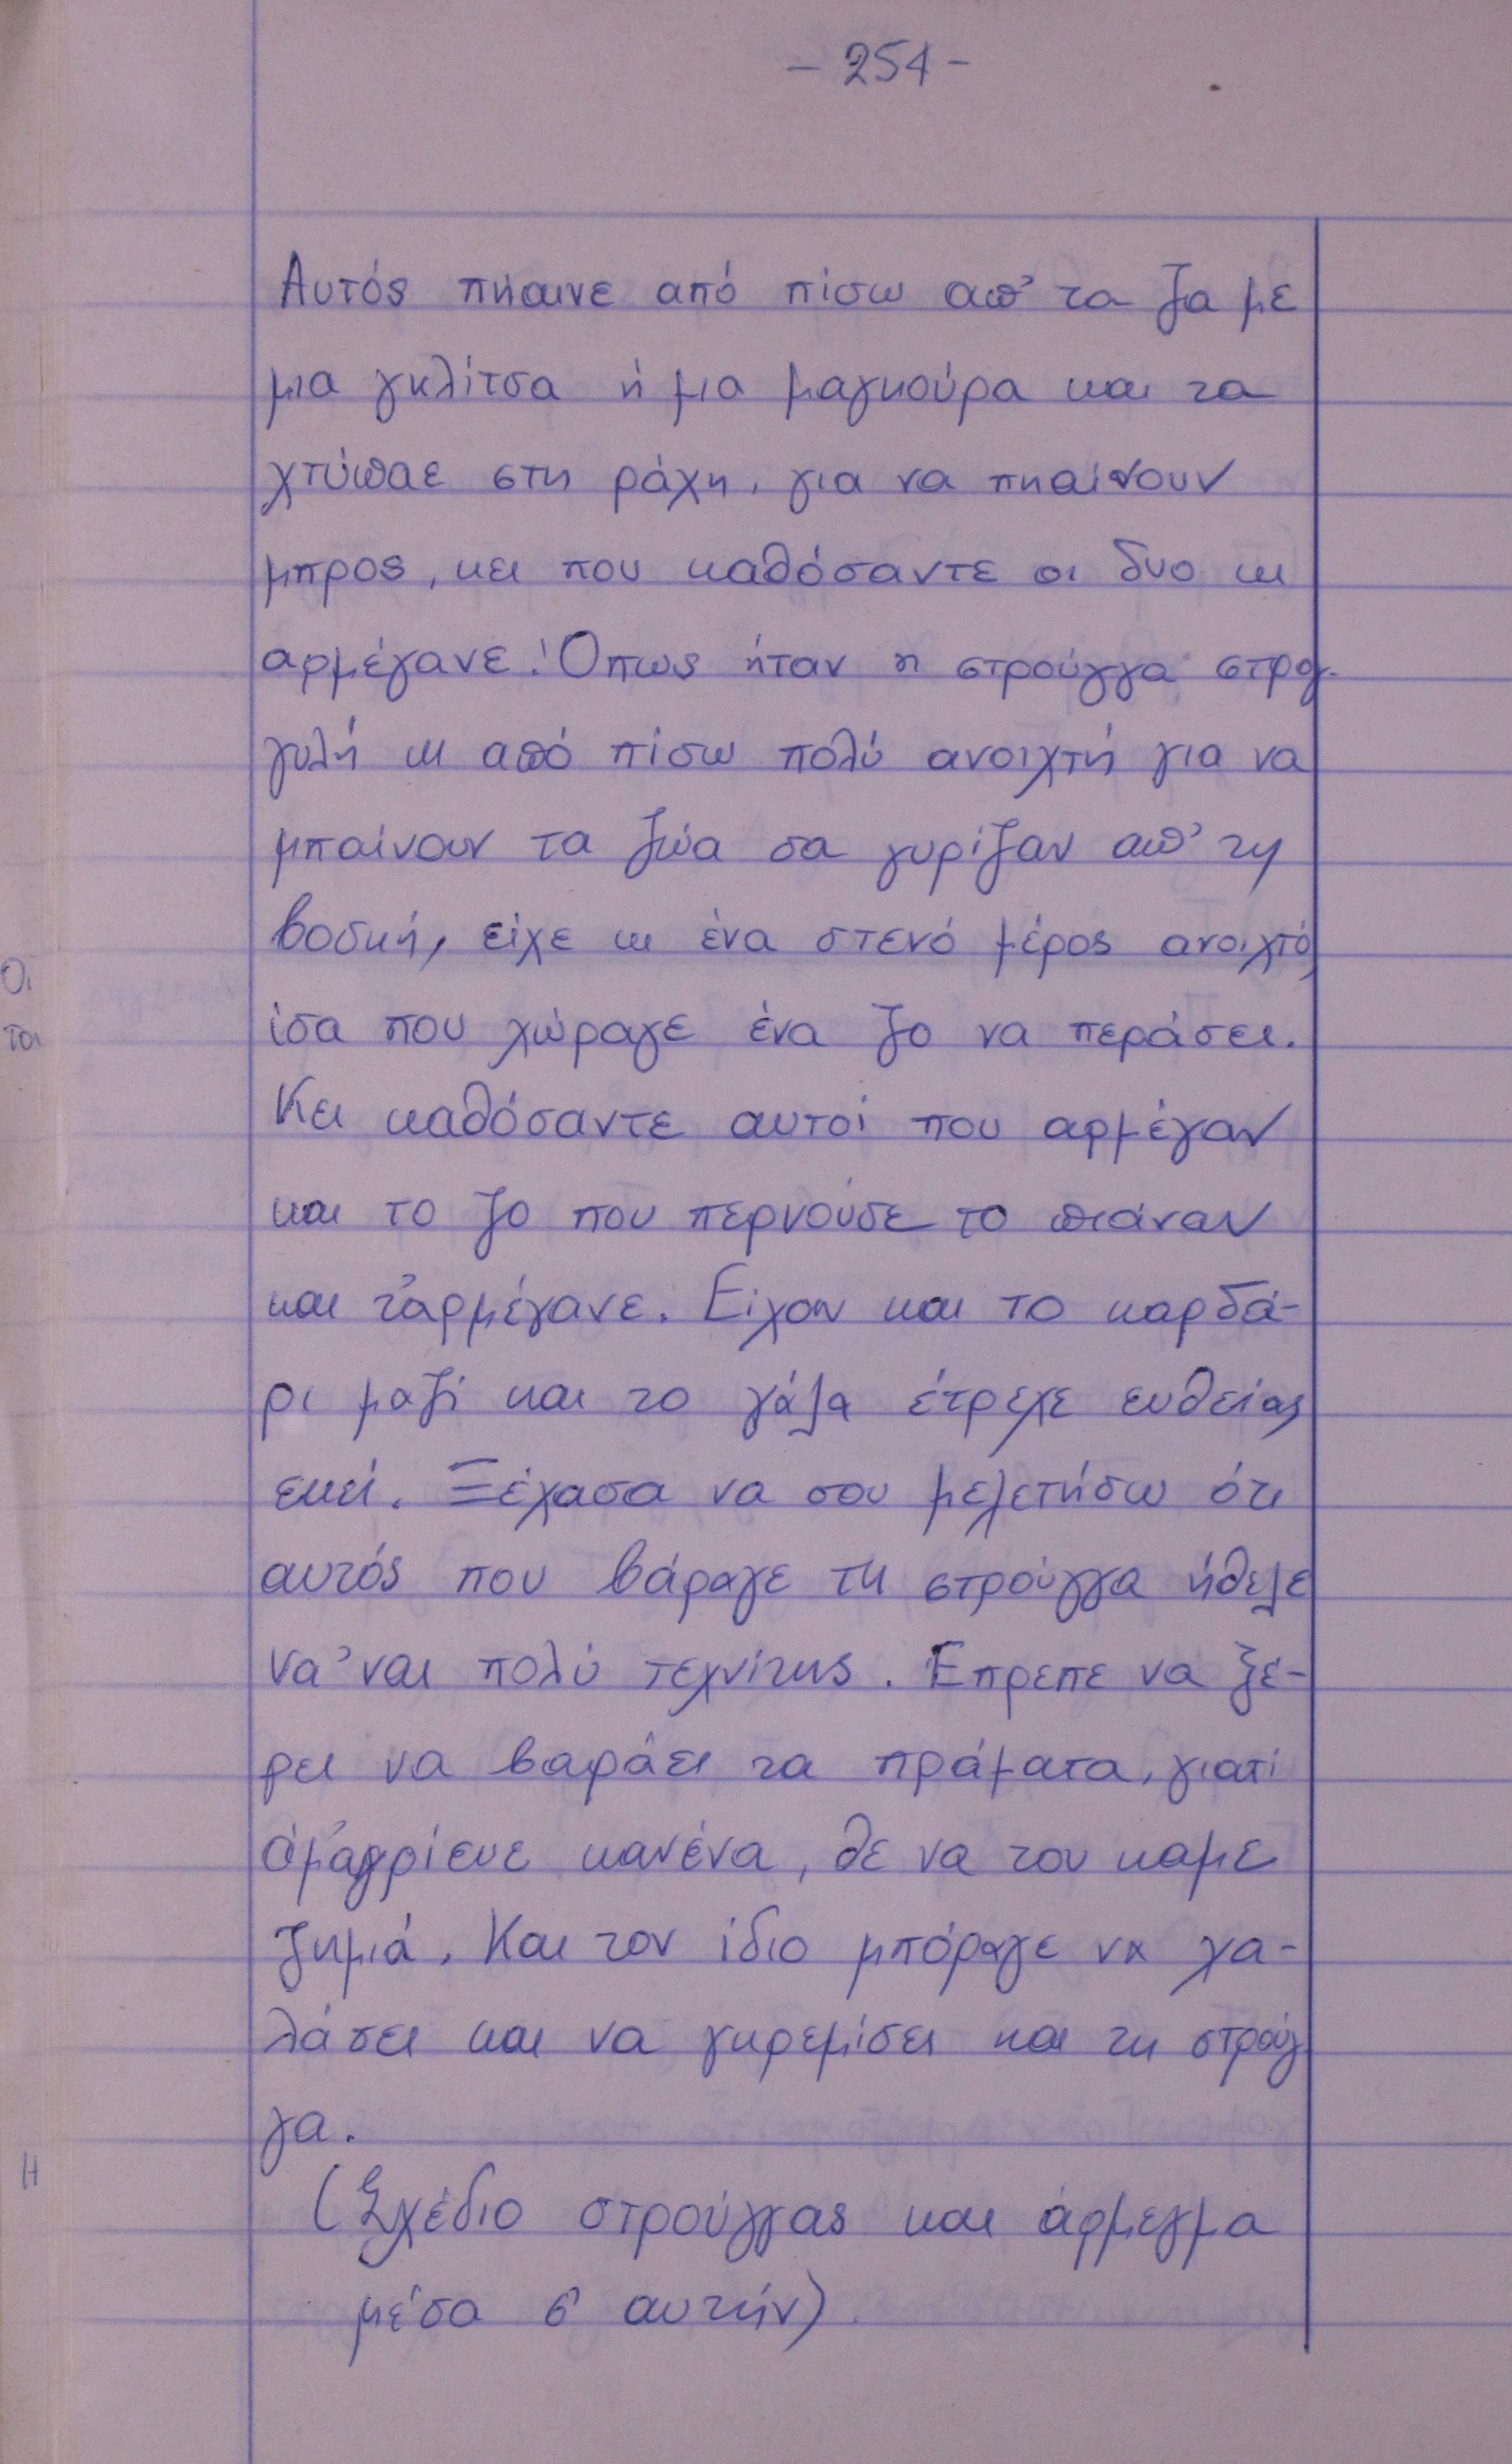 - 254 -
Αυτός πήαινε από πίσω απ' τα ζα με
μια γκλίτσα ή μια μαγκούρα και τα
χτύπαε στη ράχη, για να πηαίνουν
μπρος, κει που καθόσαντε οι δυο κι
αρμέγανε. Όπως ήταν η στρούγγα στρογ-
γυλή κι από πίσω πολύ ανοιχτή για να
μπαίνουν τα ζώα σα γυρίζαν απ' τη
βοσκή, είχε κι ένα στενό μέρος ανοιχτό,
ίσα που χώραγε ένα ζο να περάσει.
Κει καθόσαντε αυτοί που αρμέγαν
και το ζο που περνούσε το πιάναν
και τ' αρμέγανε. Είχαν και το καρδά-
ρι μαζί και το γάλα έτρεχε ευθείας
εκεί. Ξέχασα να σου μελετήσω ότι
αυτός που βάραγε τη στρούγγα ήθελε
να 'ναι πολύ τεχνίτης. Έπρεπε να ξέ-
ρει να βαράει τα πράματα, γιατί
άμ' αγρίευε κανένα, θε να του καμε
ζημιά. Και τον ίδιο μπόραγε να χα-
λάσει και να γκρεμίσει και τη στρούγ-
γα.
(Σχέδιο στρούγγας και άρμεγμα
μέσα σ' αυτήν).
Οι
τα
Η